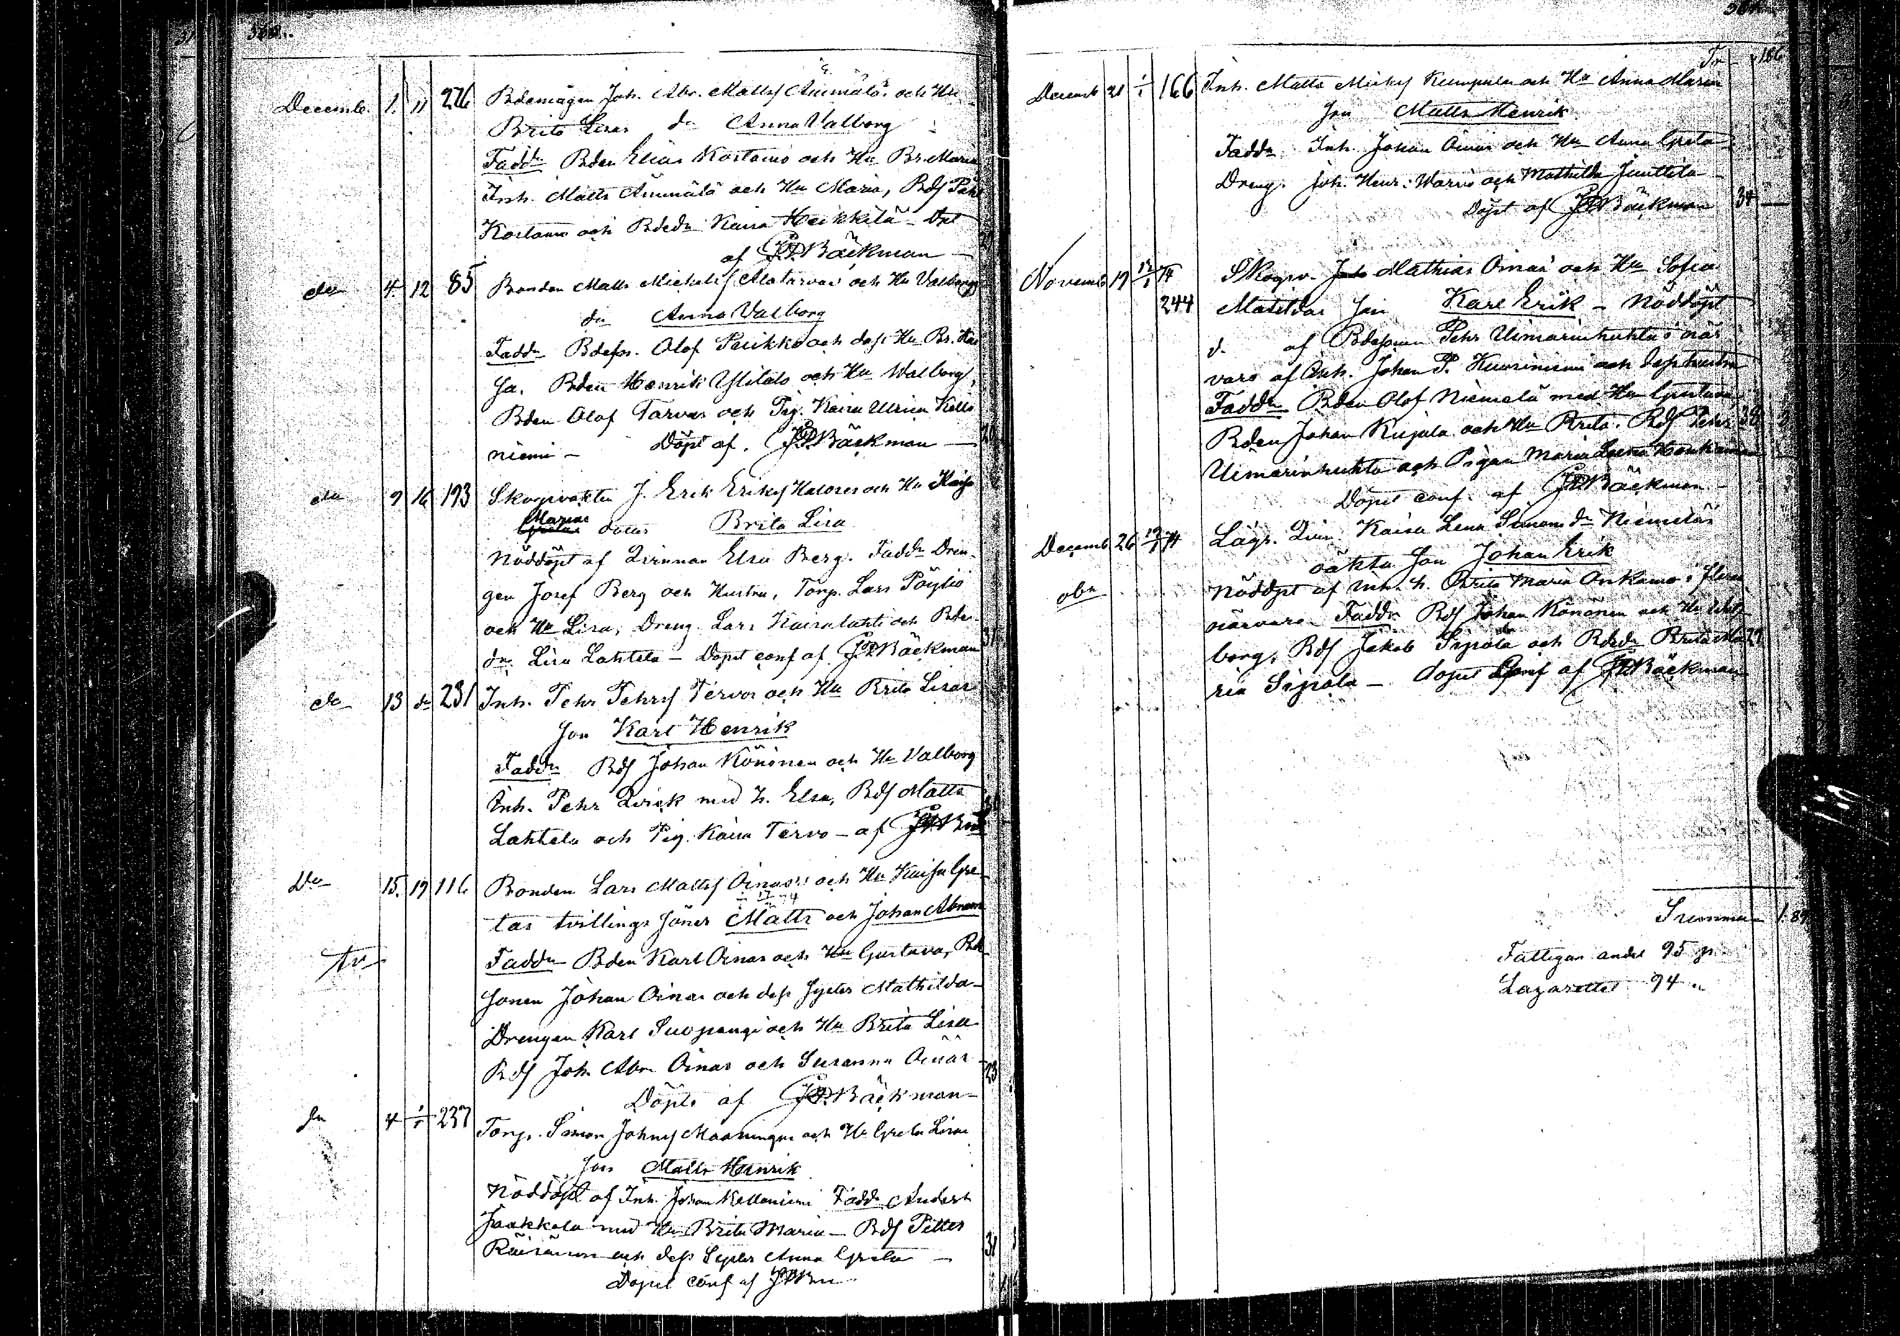 Decemb. 1. 11 226 Bdemågen Joh. Abr. Matts Ämmälä och Hu
Brita Lisas dr Anna Valborg
Faddr Bden Elias Kostamo och Hu Br. Maria
Inh. Matts Ämmälä och Hu Maria, Bds Pehr
Kostamo och Bdedr Kaisa Heikkilä – Dpt
af JP Bäckman –
do 4. 12 85 Bonden Matts Michels och Hu Valborgs
dr Anna Valborg
Faddr Bdesn. Olof och dess Hu Br. Kai
sa. Bden Henrik Ylitalo och Hu Walborg,
Bden Olof Tarvas och Pig. Kaisa Ulrica Kello
niemi – Döpt af JP Bäckman –
do 9 16 193 Skogsvakten J. Erik Eriks Halosen och Hu Kaisa
Marias dotter Brita Lisa
Nöddöpt af Qvinnan Elsa Berg. Faddr Dren-
gen Josef Berg och Hustru, Torp. Lars Pöyliö
och Hu Lisa, Dreng Lars Kaisalahti och Bde-
dr Lisa Lahtela – Dopet conf af JP Bäckman 31
do 13 do 231 Inh. Pehr Pehrs Tervos och Hu Brita Lisas
son Karl Henrik
Faddr Bds Johan Könönen och Hu Valborg
Inh. Pehr Qvick med h. Elsa, Bds Matts
Lahtela och Pig. Kaisa Tervo – af JP
Do 15. 19 116 Bonden Lars Matts Oinas och Hu Kaisa Gre-
tas tvillings söner Matts och Johan Abram
Tv Faddr Bden Karl Oinas och Hu Gustava, Bde
sonen Johan Oinas och dess syster Mathilda –
Drengen Karl Suopangi och Hu Brita Lisa
Bds Joh. Abr. Oinas och Susanna Oinas 23
Döpts af JP Bäckman –
do 4 1/1 237 Torp. Simon Johns Maaninga och Hu Greta Lisas
son Matts Henrik
Nöddöpt af Inh. Johan Kelloniemi Faddr Anders
Jaakkola med Hu Brita Maria – Bds Petter
Räisänen och dess Syster Anna Greta – 31
Dopet conf af JP
Decemb 21 1/1 166 Inh. Matts Michs Kumpula och Hu Anna Marias
son Matts Henrik
Faddr Inh. Johan Oinas och Hu Anna Greta
Dreng. Joh. Henr. Warrio och Mathilda Junttila –
Döpt af JP Bäckman 34 –
Novemb 19 Skogsv. Mathias Oinas och Hu Sofia
244 Matildas son Karl Erik – Nöddöpt
d. af Bdesonen Pehr Uimarinhuhta i när
varo af Inh. Johan P. och dess hustru
Faddr Bden Olof Niemelä med Hu Gustava,
Bden Johan Kujala och Hu Brita. Bds Pehr 38
Uimarinhuhta och Pigan Maria Lovisa
Dopet conf. af JP Bäckman –
Decemb 26 Lägr. Qvin. Kaisa Lena Simonsdr Niemeläs
oäkta son Johan Erik
obr Nöddöpt af Inh. h. Brita Maria Onkamo i fleras
närvaro Faddr Bds Johan Könönen och Hu Wal
borg, Bds Jakob Sipola och Bdedr Brita Ma 27
ria Sipola – dopet conf af JP Bäckman
Summa 1:89
Fattigas andel 95 p.
Lazarettet 94 "